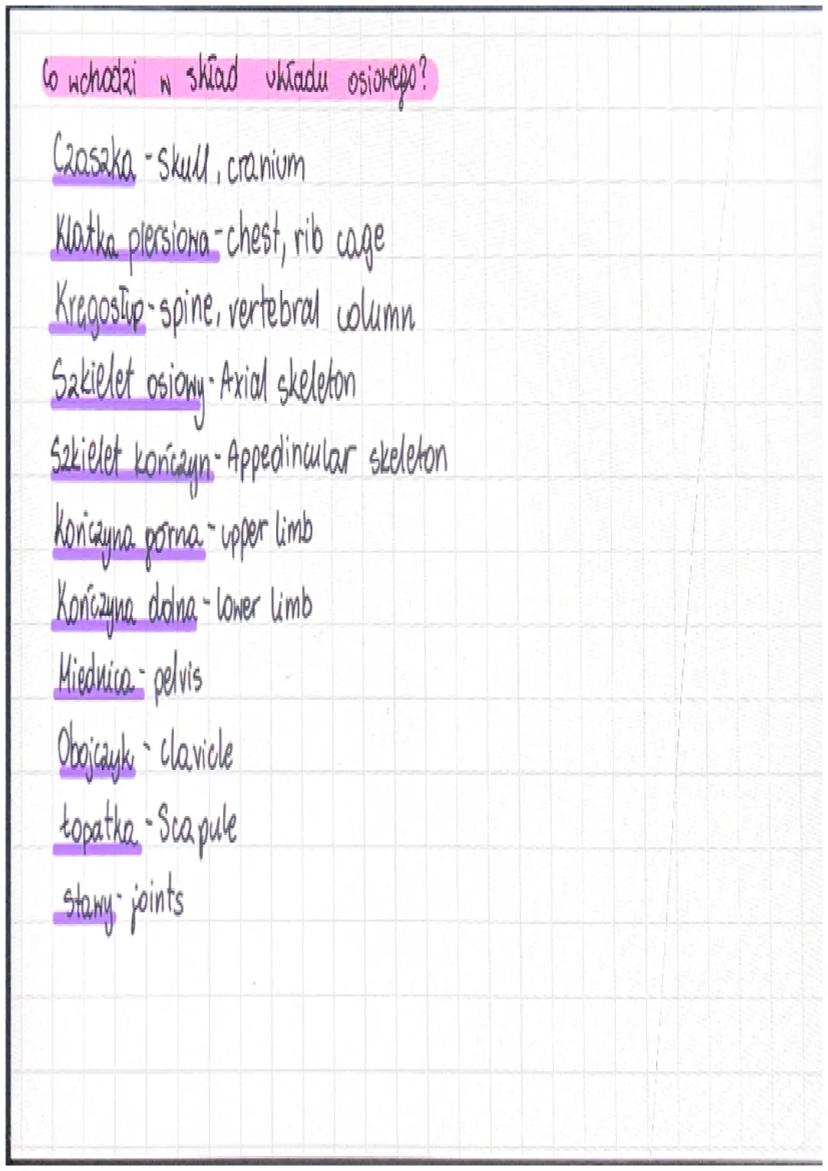 Co wchodzi w skład układu osiowego?
Czaszka - skull, cranium
Klatka piersiowa - chest, rib cage
Kręgosłup - spine, vertebral column
Szkielet osiowy - Axial skeleton
Szkielet kończyn - Appedincular skeleton
Kończyna górna - upper limb
Kończyna dolna - lower limb
Miednica - pelvis
Obojczyk - clavicle
Łopatka - Scapule
stawy - joints